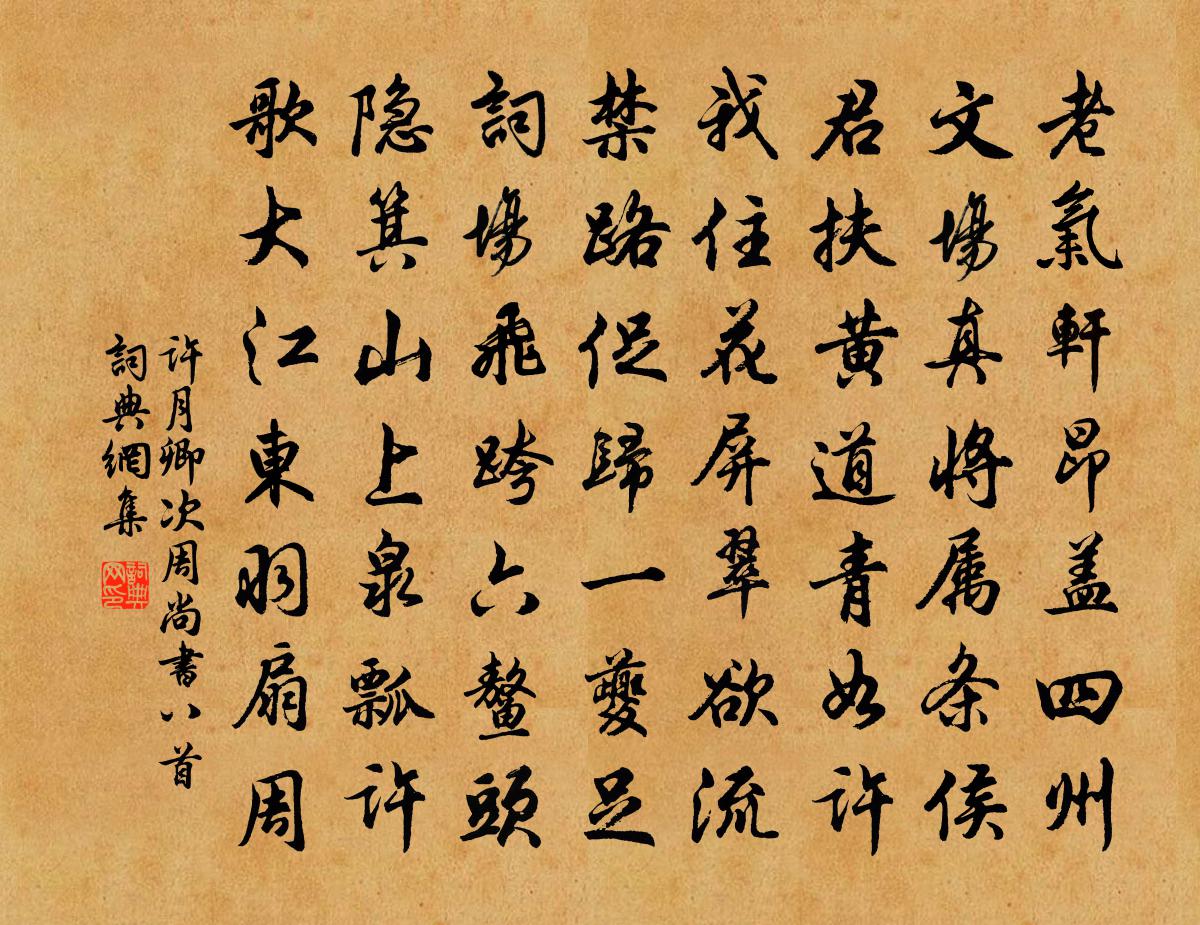 老氣軒昂盖四州
文場真將属条侯
君扶黄道青如許
我住花屏翠欲流
禁路促歸一夔足
詞場飛跨六鳌頭
隐箕山上泉瓢許
歌大江東羽扇周
许月卿次周尚書八首
詞典網集
詞典网印